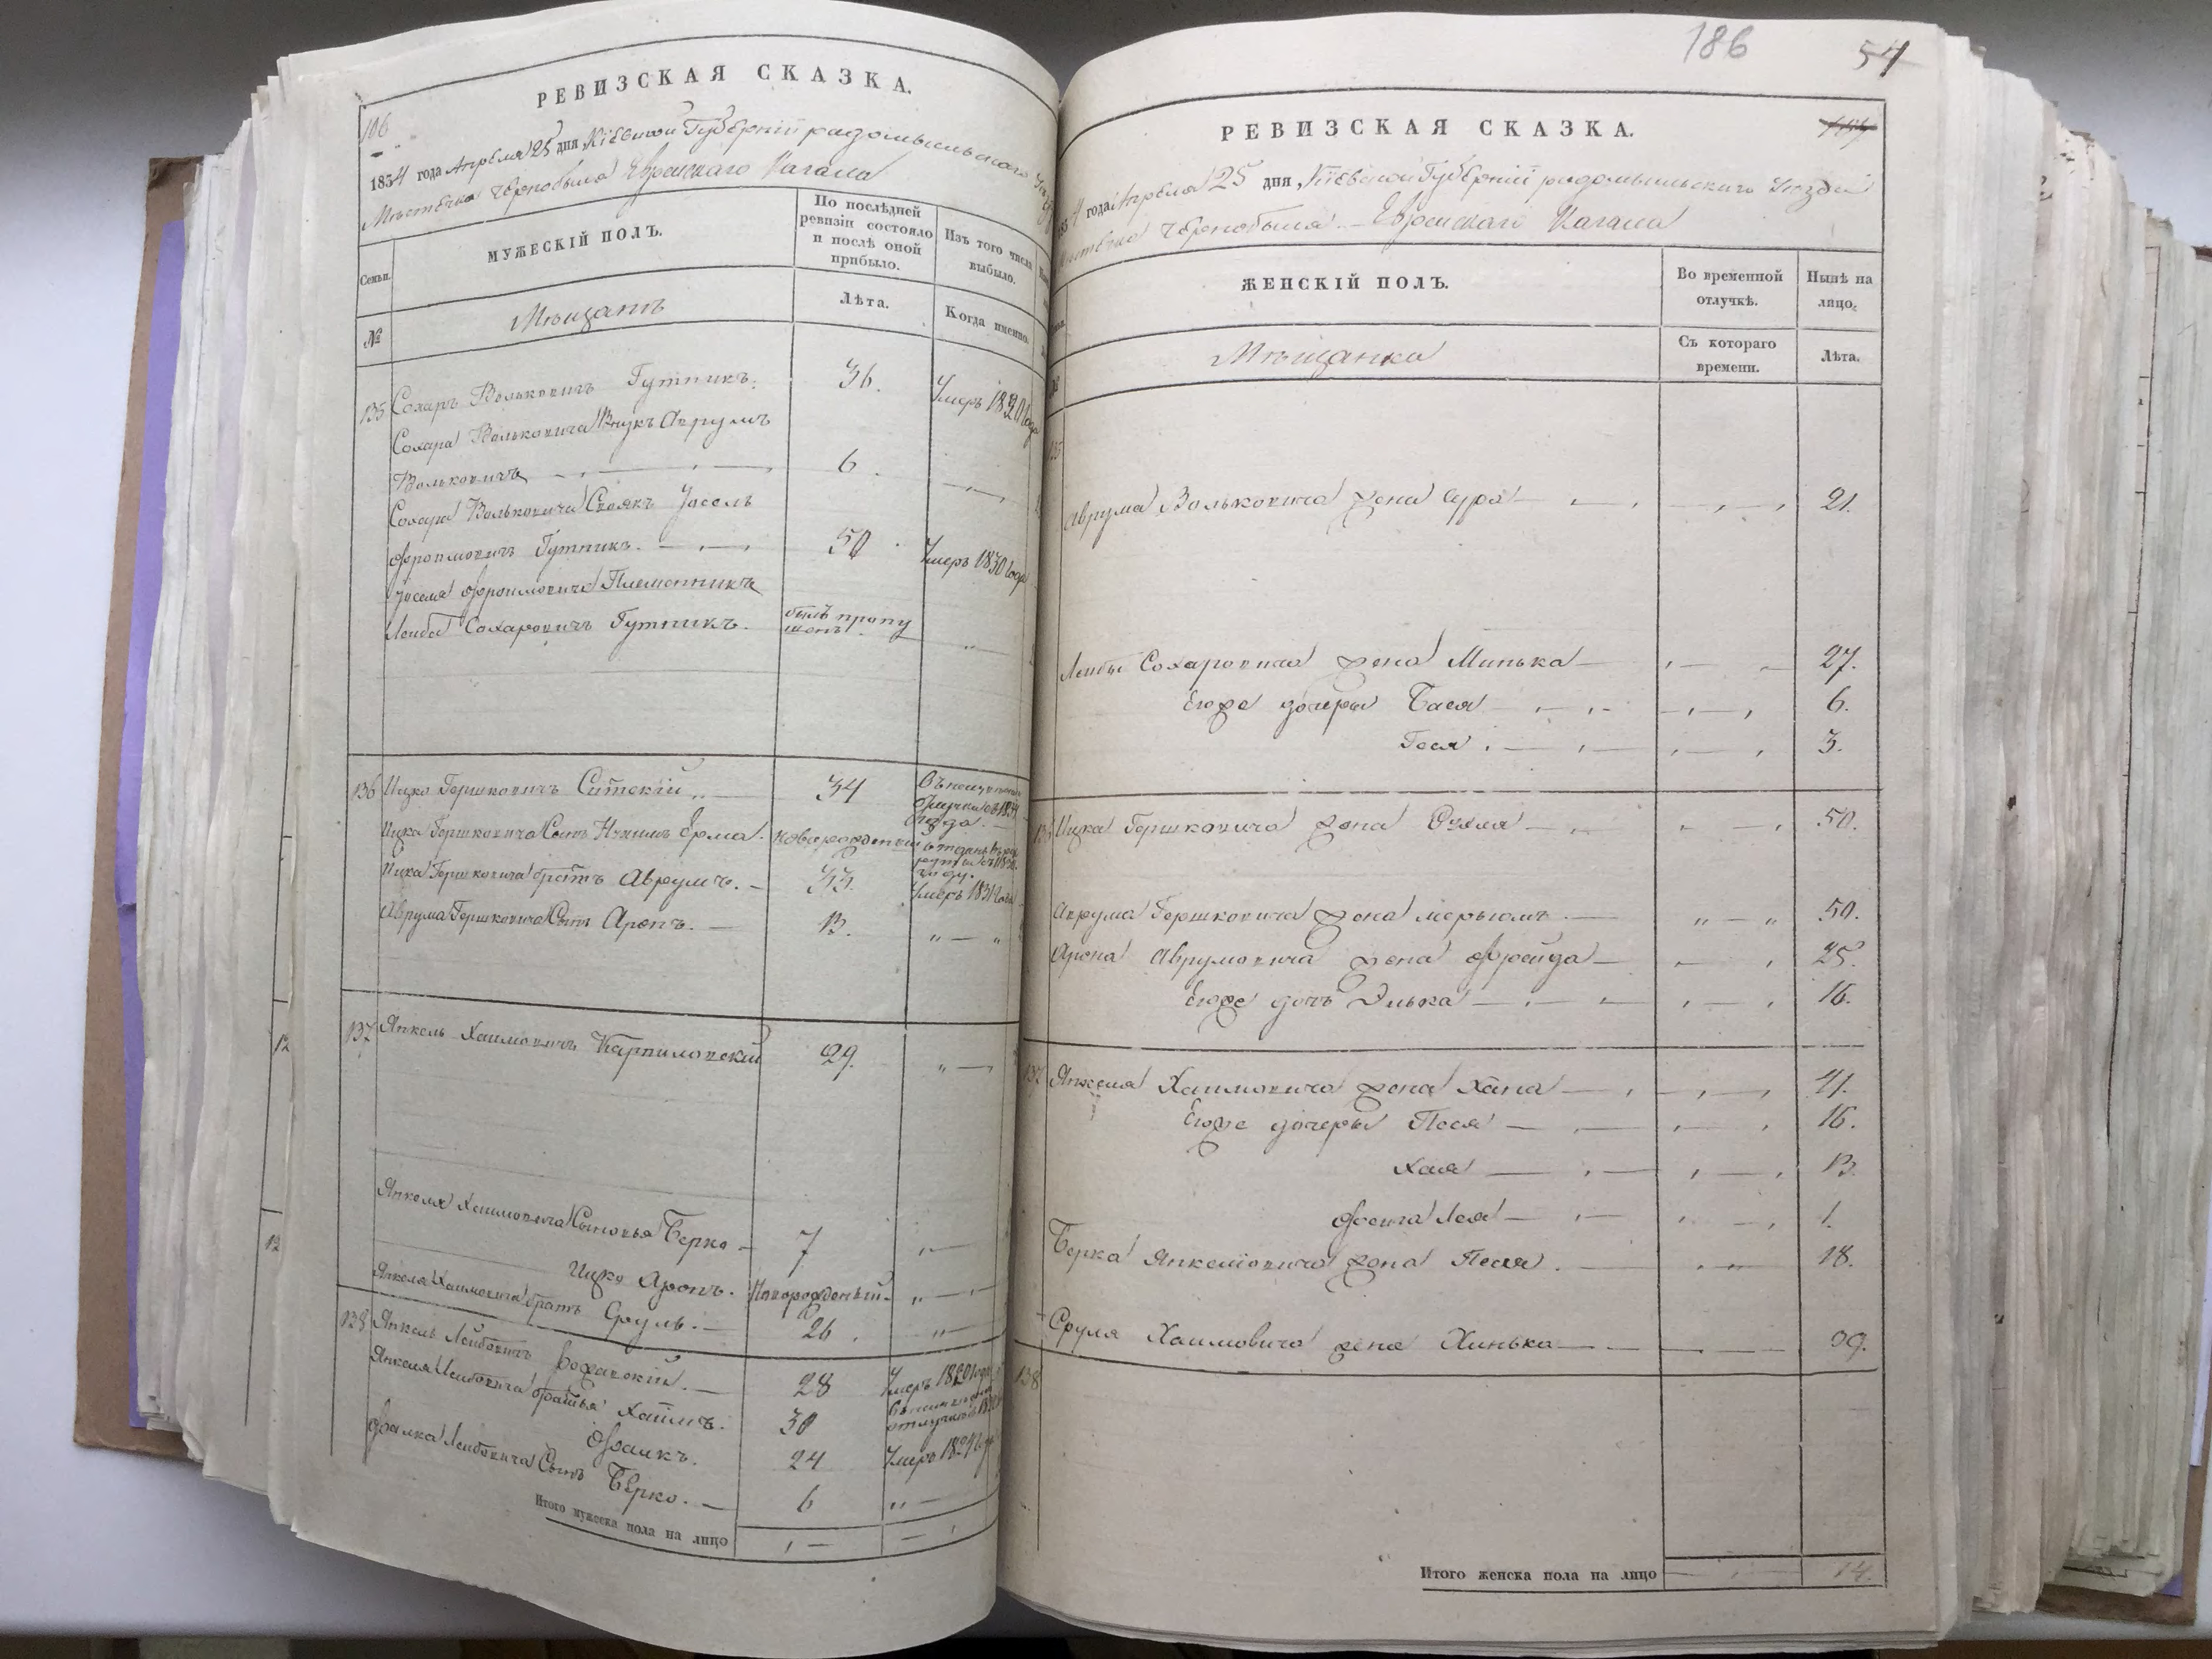 РЕВИЗСКАЯ СКАЗКА.
186
1834 года Апреля 25 дня Кіевской Губерніи радомысльского
Мѣстечка Чернобыля Еврейского Кагала
Семьи.
МУЖЕСКІЙ ПОЛЪ.
По послѣдней ревизіи состояло и послѣ оной прибыло.
Изъ того числа выбыло.
№
Мѣщанъ
Лѣта.
Когда именно.
135 Сохаръ Вольковичъ Гутникъ. 36. Умеръ 1820 года
Сохара Вольковича Внукъ Аврумъ
Вольковичъ 6.
Сохара Вольковича Своякъ Іосель
Фроимовичъ Гутникъ. 50. Умеръ 1830 года
Іоселя Фроимовича Племянникъ
Лейба Сохаровичъ Гутникъ. былъ пропу
щенъ
136 Ицко Гершковичъ Ситскій 34
Ицка Гершковича Сынъ Ерма. новорожденый
Ицка Гершковича братъ Аврумъ. 33. Умеръ 1831 года
Аврума Гершковича Сынъ Аронъ. 13.
137 Янкель Хаимовичъ Карпиловскій 29.
Янкеля Хаимовича Сыновья Берко 7
Ицко Аронъ. Новорожденый
Янкеля Хаимовича братъ Сруль. 26.
138 Янкель Лейбовичъ 28 Умеръ 1820 года
Янкеля Лейбовича братья Хаимъ. 30
Фалкъ. 24 Умеръ
Фалка Лейбовича Сынъ Берко. 6
Итого мужеска пола на лицо
186
54
РЕВИЗСКАЯ СКАЗКА.
года Апреля 25 дня Кіевской Губерніи радомысльского Уезда
Чернобыля Еврейского Кагала
ЖЕНСКІЙ ПОЛЪ.
Во временной отлучкѣ.
Нынѣ на лицо.
Мѣщанка
Съ котораго времени.
Лѣта.
135
Аврума Вольковича жена Сура 21.
Лейбы Сохаровича жена Минька 27.
Егоже дочери Бася 6.
Гося 3.
Ицка Гершковича жена Рухля 50.
Аврума Гершковича жена мерьямъ. 50.
Арона Аврумовича жена Фрейда 25.
Егоже дочь Элька 16.
137 Янкеля Хаимовича жена Хана 41.
Егоже дочери Песя 16.
Хая 13.
Фейга Лея 1.
Берка Янкелiовича жена Песя. 18.
Сруля Хаимовича жена Хинька 39.
138
Итого женска пола на лицо 14.
12
12